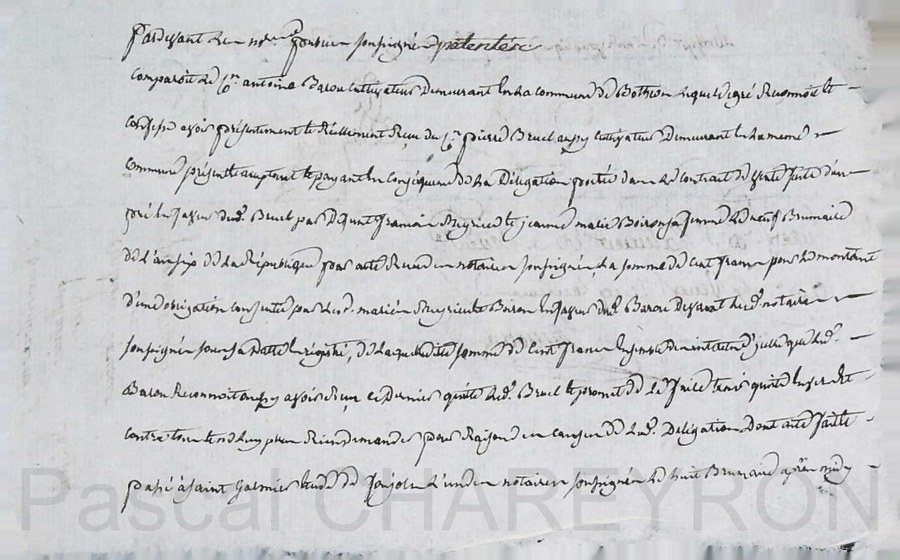 Pardevant Les notres publics soussignés patentés
Comparoit Le Cn. antoine Barou Cultivateur Demeurant En La commune de Bothéon Lequel de gré Reconnoit Et
Confesse avoir présentement Et Réellement Reçu du Cn. pierre Bruel aussy Cultivateur Demeurant En La meme
Commune présent acceptant Et payant En Conséquence de La Délégation portée dans Le contrat de vente faite d'un
pré En faveur dud. Bruel par Defunt francois Et jeanne marie sa femme Le neuf Brumaire
de L'an six de La République par acte Reçu des notaires soussignés La somme de Cent francs pour Le montant
d'une obligation Consentie par Les d. mariés Et En faveur dud. Barou Devant Led. notaire
soussigné sous sa datte Enregistré, de Laquelle ditte somme de Cent francs Ensemble des intérêts d'jcelle que Led.
Barou Reconnoit aussy avoir Reçu ce Dernier quitte Led. Bruel Et promet de Le faire tenir quitte Envers Et
Contre tous Et de Luy plus Rien demander pour Raison des causes de Lad. Délégation Dont acte faitte
passé à saint Galmier Etude de L'un des notaires soussignés Le huit Brumaire après midy
Pascal CHAREYRON